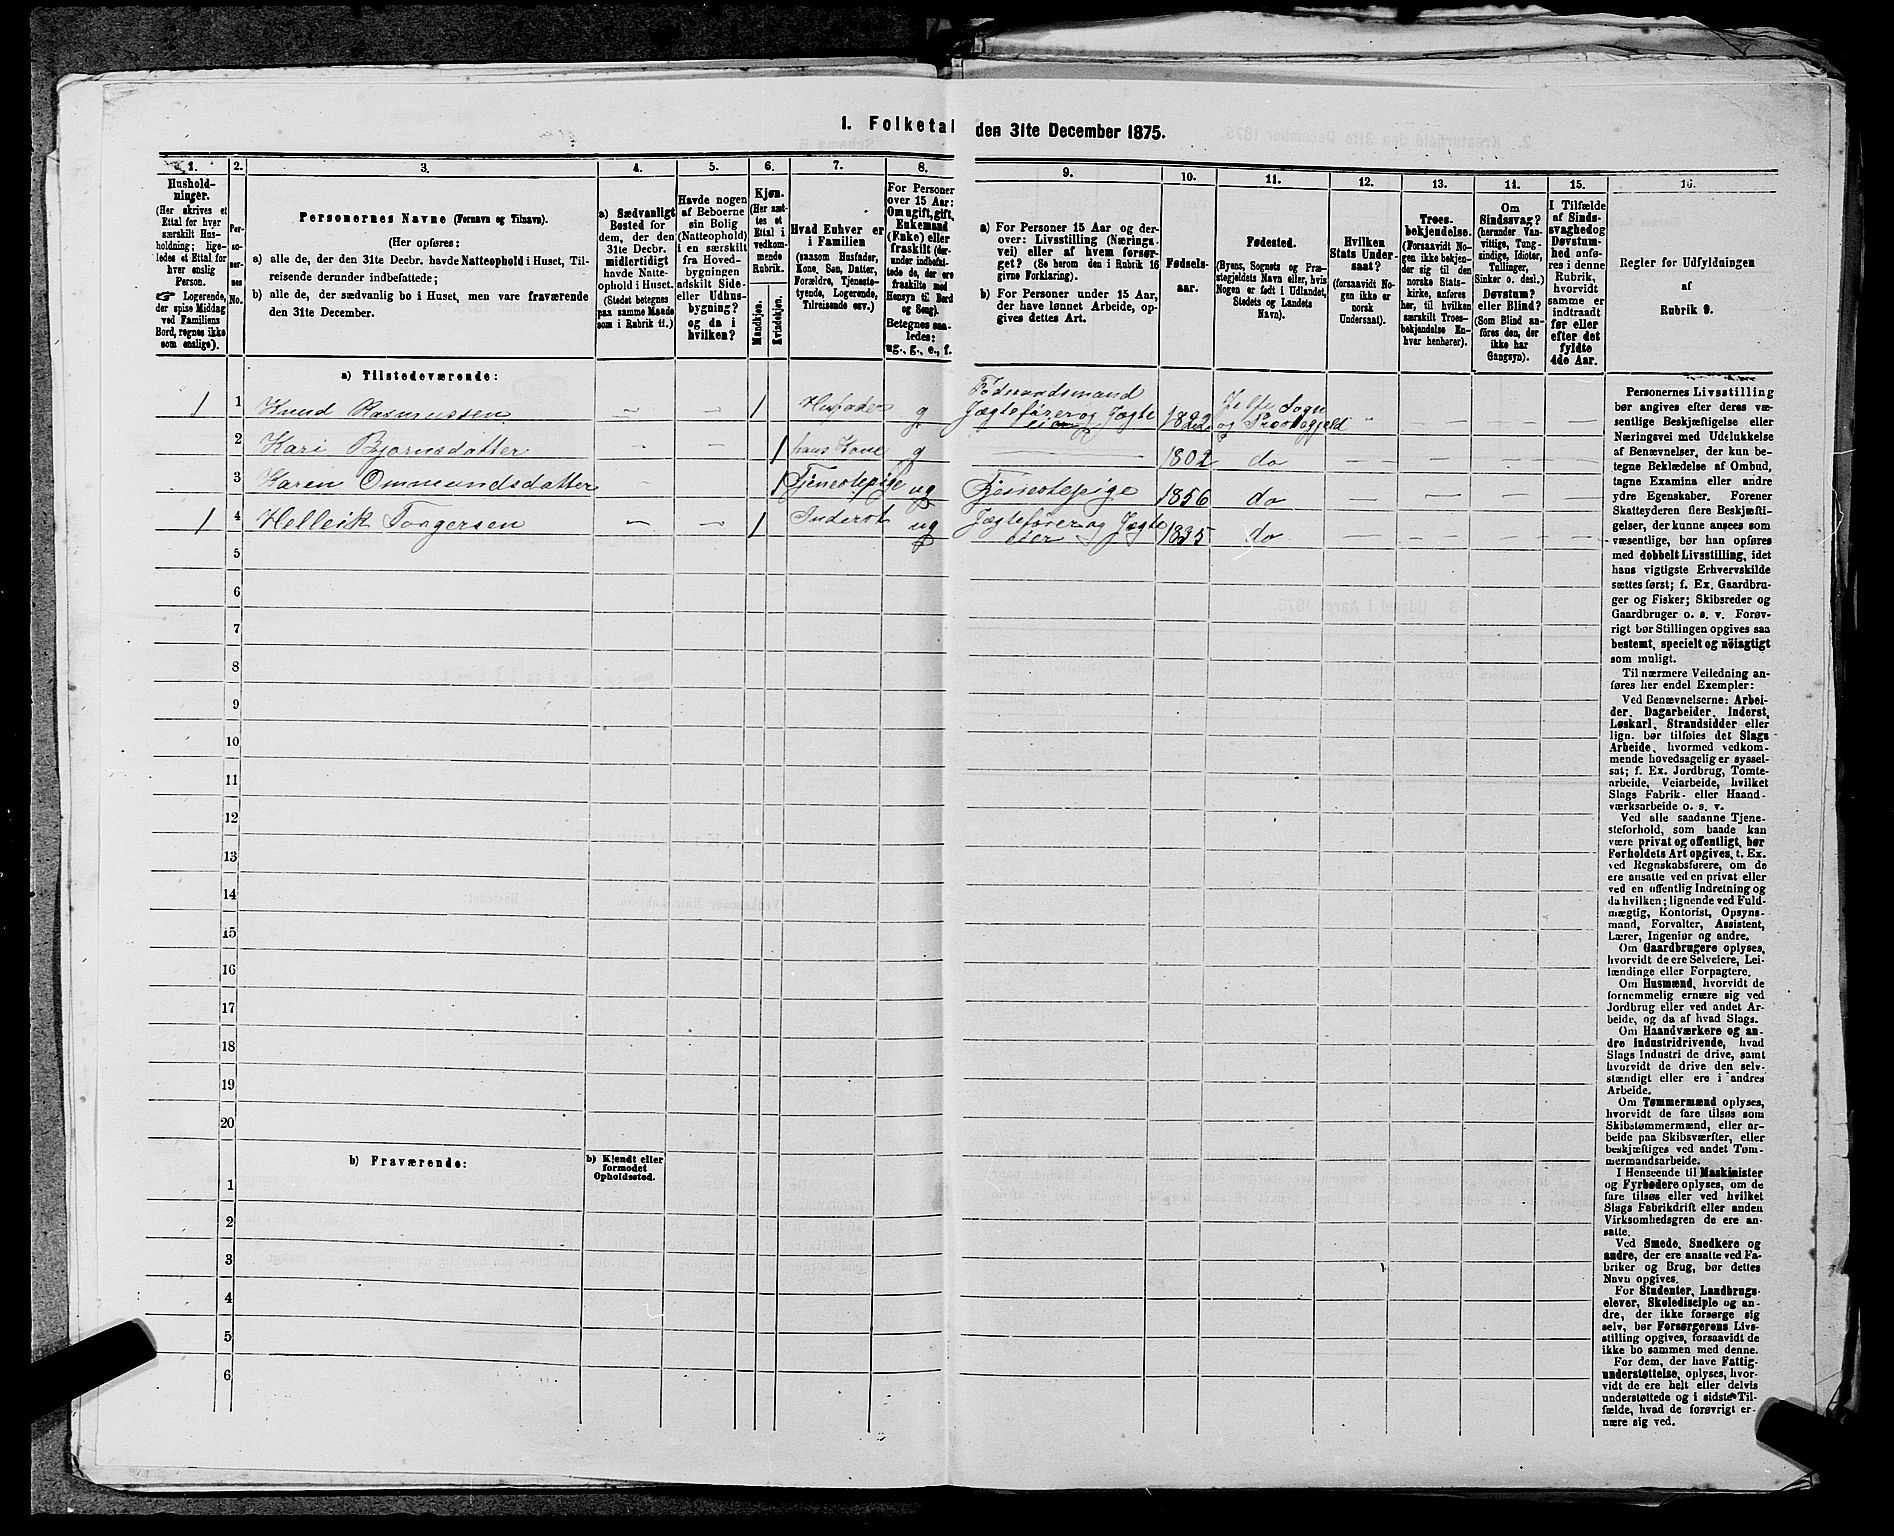 1. Folketal den 31te December 1875.
1.
2.
3.
4.
5.
6.
7.
8.
9.
10.
11.
12.
13.
14.
15.
16.
Hushold-
ninger.
(Her skrives et
Ettal for hver
særskilt Hus-
holdning; lige-
ledes et Ettal for
hver enslig
Person.
☞ Logerende,
der spise Middag
ved Familiens
Bord, regnes ikke
som enslige).
Per-
so-
ner-
nes
No.
Personernes Navne (Fornavn og Tilnavn).
(Her opføres:
a) alle de, der den 31te Decbr. havde Natteophold i Huset, Til-
reisende derunder indbefattede;
b) alle de, der sædvanlig bo i Huset, men vare fraværende
den 31te December.
a) Sædvanligt
Bosted for
dem, der den
31te Decbr.
midlertidigt
havde Natte-
ophold i Huset.
(Stedet betegnes
paa samme Maade
som i Rubrik 11.)
Havde nogen
af Beboerne
sin Bolig
(Natteophold)
i en særskilt
fra Hoved-
bygningen
adskilt Side-
eller Udhus-
bygning?
og da i
hvilken?
Kjøn.
(Her sæt-
tes et
Ettal i
vedkom-
mende
Rubrik.
Mandkjøn.
Kvindekjøn.
Hvad Enhver er
i Familien
(saasom Husfader,
Kone, Søn, Datter,
Forældre, Tjeneste-
tyende, Logerende,
Tilreisende osv.)
For Personer
over 15 Aar:
Om ugift, gift,
Enkemand
(Enke) eller
fraskilt (der-
under indbefat-
tede de, der ere
fraskilte med
Hensyn til Bord
og Seng).
Betegnes saa-
ledes:
ug., g., e., f.
a) For Personer 15 Aar og der-
over: Livsstilling (Nærings-
vei) eller af hvem forsør-
get? (Se herom den i Rubrik 16
givne Forklaring).
b) For Personer under 15 Aar,
der have lønnet Arbeide, op-
gives dettes Art.
Fødsels-
aar.
Fødested.
(Byens, Sognets og Præ-
stegjeldets Navn, eller, hvis
Nogen er født i Udlandet,
Stedets og Landets
Navn).
Hvilken
Stats Under-
saat?
(forsaavidt No-
gen ikke er
norsk
Undersaat).
Troes-
bekjendelse.
(Forsaavidt No-
gen ikke bekjen-
der sig til den
norske Stats-
kirke, anføres
her, til hvilken
særskilt Troes-
bekjendelse En-
hver henhører).
Om
Sindssvag?
(herunder Van-
vittige, Tung-
sindige, Idioter,
Tullinger,
Sinker o. desl.)
Døvstum?
eller Blind?
(Som Blind an-
føres den, der
ikke har
Gangsyn).
I Tilfælde
af Sinds-
svaghed og
Døvstum-
hed anfø-
res i denne
Rubrik,
hvorvidt
samme er
indtraadt
før eller
efter det
fyldte
4de Aar.
Regler for Udfyldningen
af
Rubrik 9.
a) Tilstedeværende:
1 1 Knud Rasmussen — — 1 Husfader g Fødraadsmand
Jægtefører og Jægte
eier 1822 og Præstegjeld
2 Kari Bjørnsdatter — — 1 hans Kone g — 1802 do
3 Karen Ommundsdatter — 1 Tjenestepige ug Tjenestepige 1856 do
1 4 Helleik Torgersen — — 1 Inderst ug Jægtefører og Jægte
eier 1835 do
5
6
7
8
9
10
11
12
13
14
15
16
17
18
19
20
b) Fraværende:
b) Kjendt eller
formodet
Opholdssted.
1
2
3
4
5
6
Personernes Livsstilling
bør angives efter deres væ-
sentlige Beskjæftigelse eller
Næringsvei med Udelukkelse
af Benævnelser, der kun be-
tegne Beklædelse af Ombud,
tagne Examina eller andre
ydre Egenskaber. Forener
Skatteyderen flere Beskjæfti-
gelser, der kunne ansees som
væsentlige, bør han opføres
med dobbelt Livsstilling, idet
hans vigtigste Erhvervskilde
sættes først; f. Ex. Gaardbru-
ger og Fisker; Skibsreder og
Gaardbruger o. s. v. Forøv-
rigt bør Stillingen opgives saa
bestemt, specielt og nöiagtigt
som muligt.
Til nærmere Veiledning an-
føres her endel Exempler:
Ved Benævnelserne: Arbei-
der, Dagarbeider, Inderst,
Løskarl, Strandsidder eller
lign. bør tilføies det Slags
Arbeide, hvormed vedkom-
mende hovedsagelig er syssel-
sat; f. Ex. Jordbrug, Tomte-
arbeide, Veiarbeide, hvilket
Slags Fabrik- eller Haand-
værksarbeide o. s. v.
Ved alle saadanne Tjene-
steforhold, som baade kan
være privat og offentligt, bør
Forholdets Art opgives, t. Ex.
ved Regnskabsførere, om de
ere ansatte ved en privat eller
ved en offentlig Indretning og
da hvilken; lignende ved Fuld-
mægtig, Kontorist, Opsyns-
mand, Forvalter, Assistent,
Lærer, Ingeniør og andre.
Om Gaardbrugere oplyses,
hvorvidt de ere Selveiere, Lei-
lændinge eller Forpagtere.
Om Husmænd, hvorvidt de
fornemmelig ernære sig ved
Jordbrug eller ved andet Ar-
beide, og da af hvad Slags.
Om Haandværkere og an-
dre industridrivende, hvad
Slags Industri de drive, samt
hvorvidt de drive den selv-
stændigt eller ere i andres
Arbeide.
Om Tømmermænd oplyses,
hvorvidt de fare tilsøs som
Skibstømmermænd, eller ar-
beide paa Skibsværfter, eller
beskjæftiges ved andet Tøm-
mermandsarbeide.
I Henseende til Maskinister
og Fyrbødere oplyses, om de
fare tilsøs eller ved hvilket
Slags Fabrikdrift eller anden
Virksomhedsgren de ere an-
satte.
Ved Smede, Snedkere og
andre, der ere ansatte ved Fa-
briker og Brug, bør dettes
Navn opgives.
For Studenter, Landbrugs-
elever, Skoledisciple og an-
dre, der ikke forsørge sig
selv, bør Forsørgerens Livs-
stilling opgives, forsaavidt de
ikke bo sammen med denne.
For dem, der have Fattig-
understøttelse, oplyses, hvor-
vidt de ere helt eller delvis
understøttede og i sidste Til-
fælde, hvad de forøvrigt er-
nære sig ved.